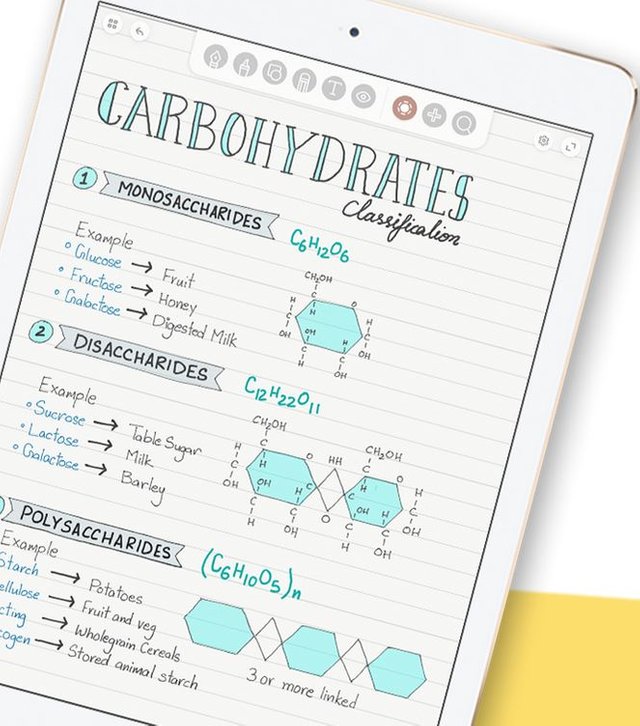 CARBOHYDRATES
Classification
1 MONOSACCHARIDES C6H12O6
Example
Glucose → Fruit
Fructose → Honey
Galactose → Digested Milk
CH2OH
C O
H H H
C C
OH OH H OH
C C
H OH
2 DISACCHARIDES C12H22O11
Example
Sucrose → Table Sugar
Lactose → Milk
Galactose → Barley
CH2OH CH2OH
C O HH C O
H H H H
C C C C
OH OH H OH H OH
C C O C C
H OH H OH
POLYSACCHARIDES (C6H10O5)n
Example
Starch → Potatoes
ellulose → Fruit and veg
cting → Wholegrain Cereals
cogen → Stored animal starch
3 or more linked